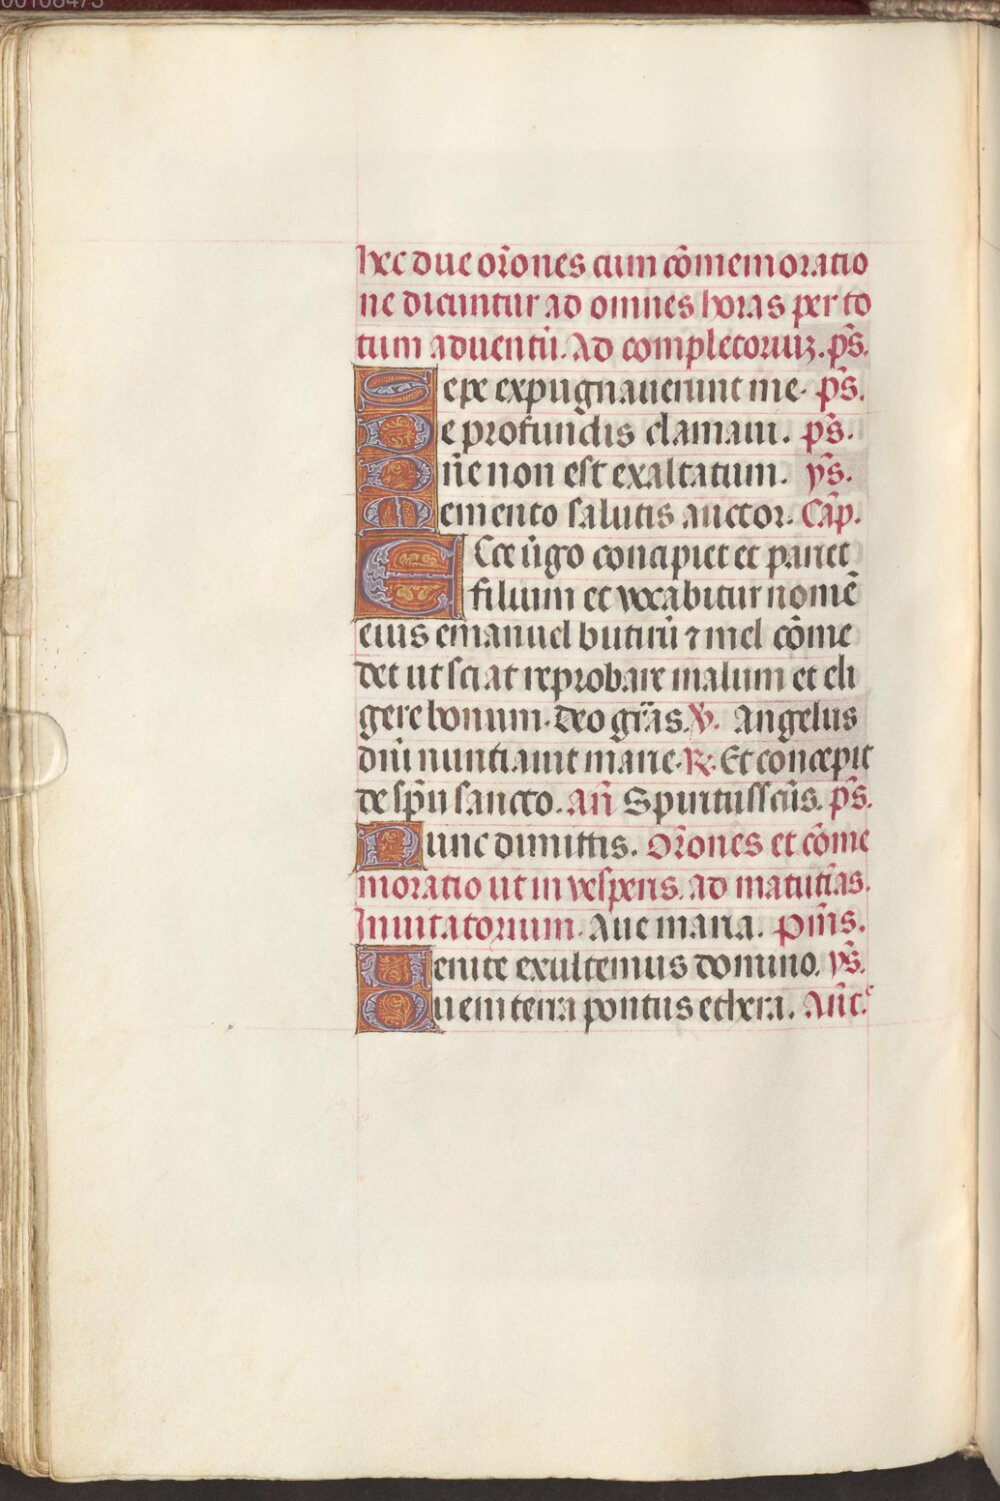 hec due or̃ones cum cõmemoratio
ne dicuntur ad omnes horas per to
tum aduentũ. Ad completoriuʒ. p̃s.
Sepe expugnauerunt me. p̃s.
De profundis clamaui. p̃s.
Dñe non est exaltatum. ỹs.
Memento salutis auctor. Cãp.
Ecce ũgo concipiet et pariet
filium et vocabitur nomẽ
eius emanuel butirũ ⁊ mel cõme
det ut sciat reprobare malum et eli
gere bonum. Deo gr̃as. ℣. Angelus
dñi nuntiauit marie. ℟. Et concepit
de sp̃u sancto. Añ Spiritus sc̃us. p̃s.
Nunc dimittis. Or̃ones et cõme
moratio ut in vesperis. ad matutĩas.
Inuitatorium. Aue maria. p̃mĩs.
Uenite exultemus domino. ỹs.
Quem terra pontus ethera. Añt.ᵉ